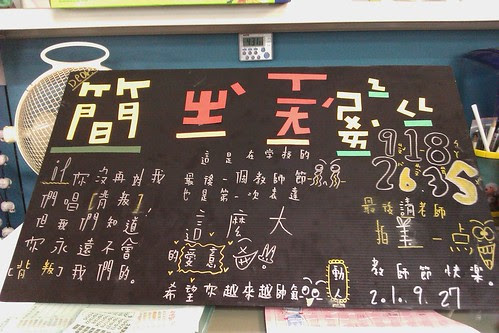 簡
DEAR
if 你沒再對我
們唱〔背叛〕
但我們知道
你永遠不會
[背叛]我們的。
這是在学校的
最後一個教師節
也是第一次表達
這麼大
的愛意
希望你越來越帥氣
動人
918
2635
最後請老師
指美一点
教師節快樂。
2010.9.27